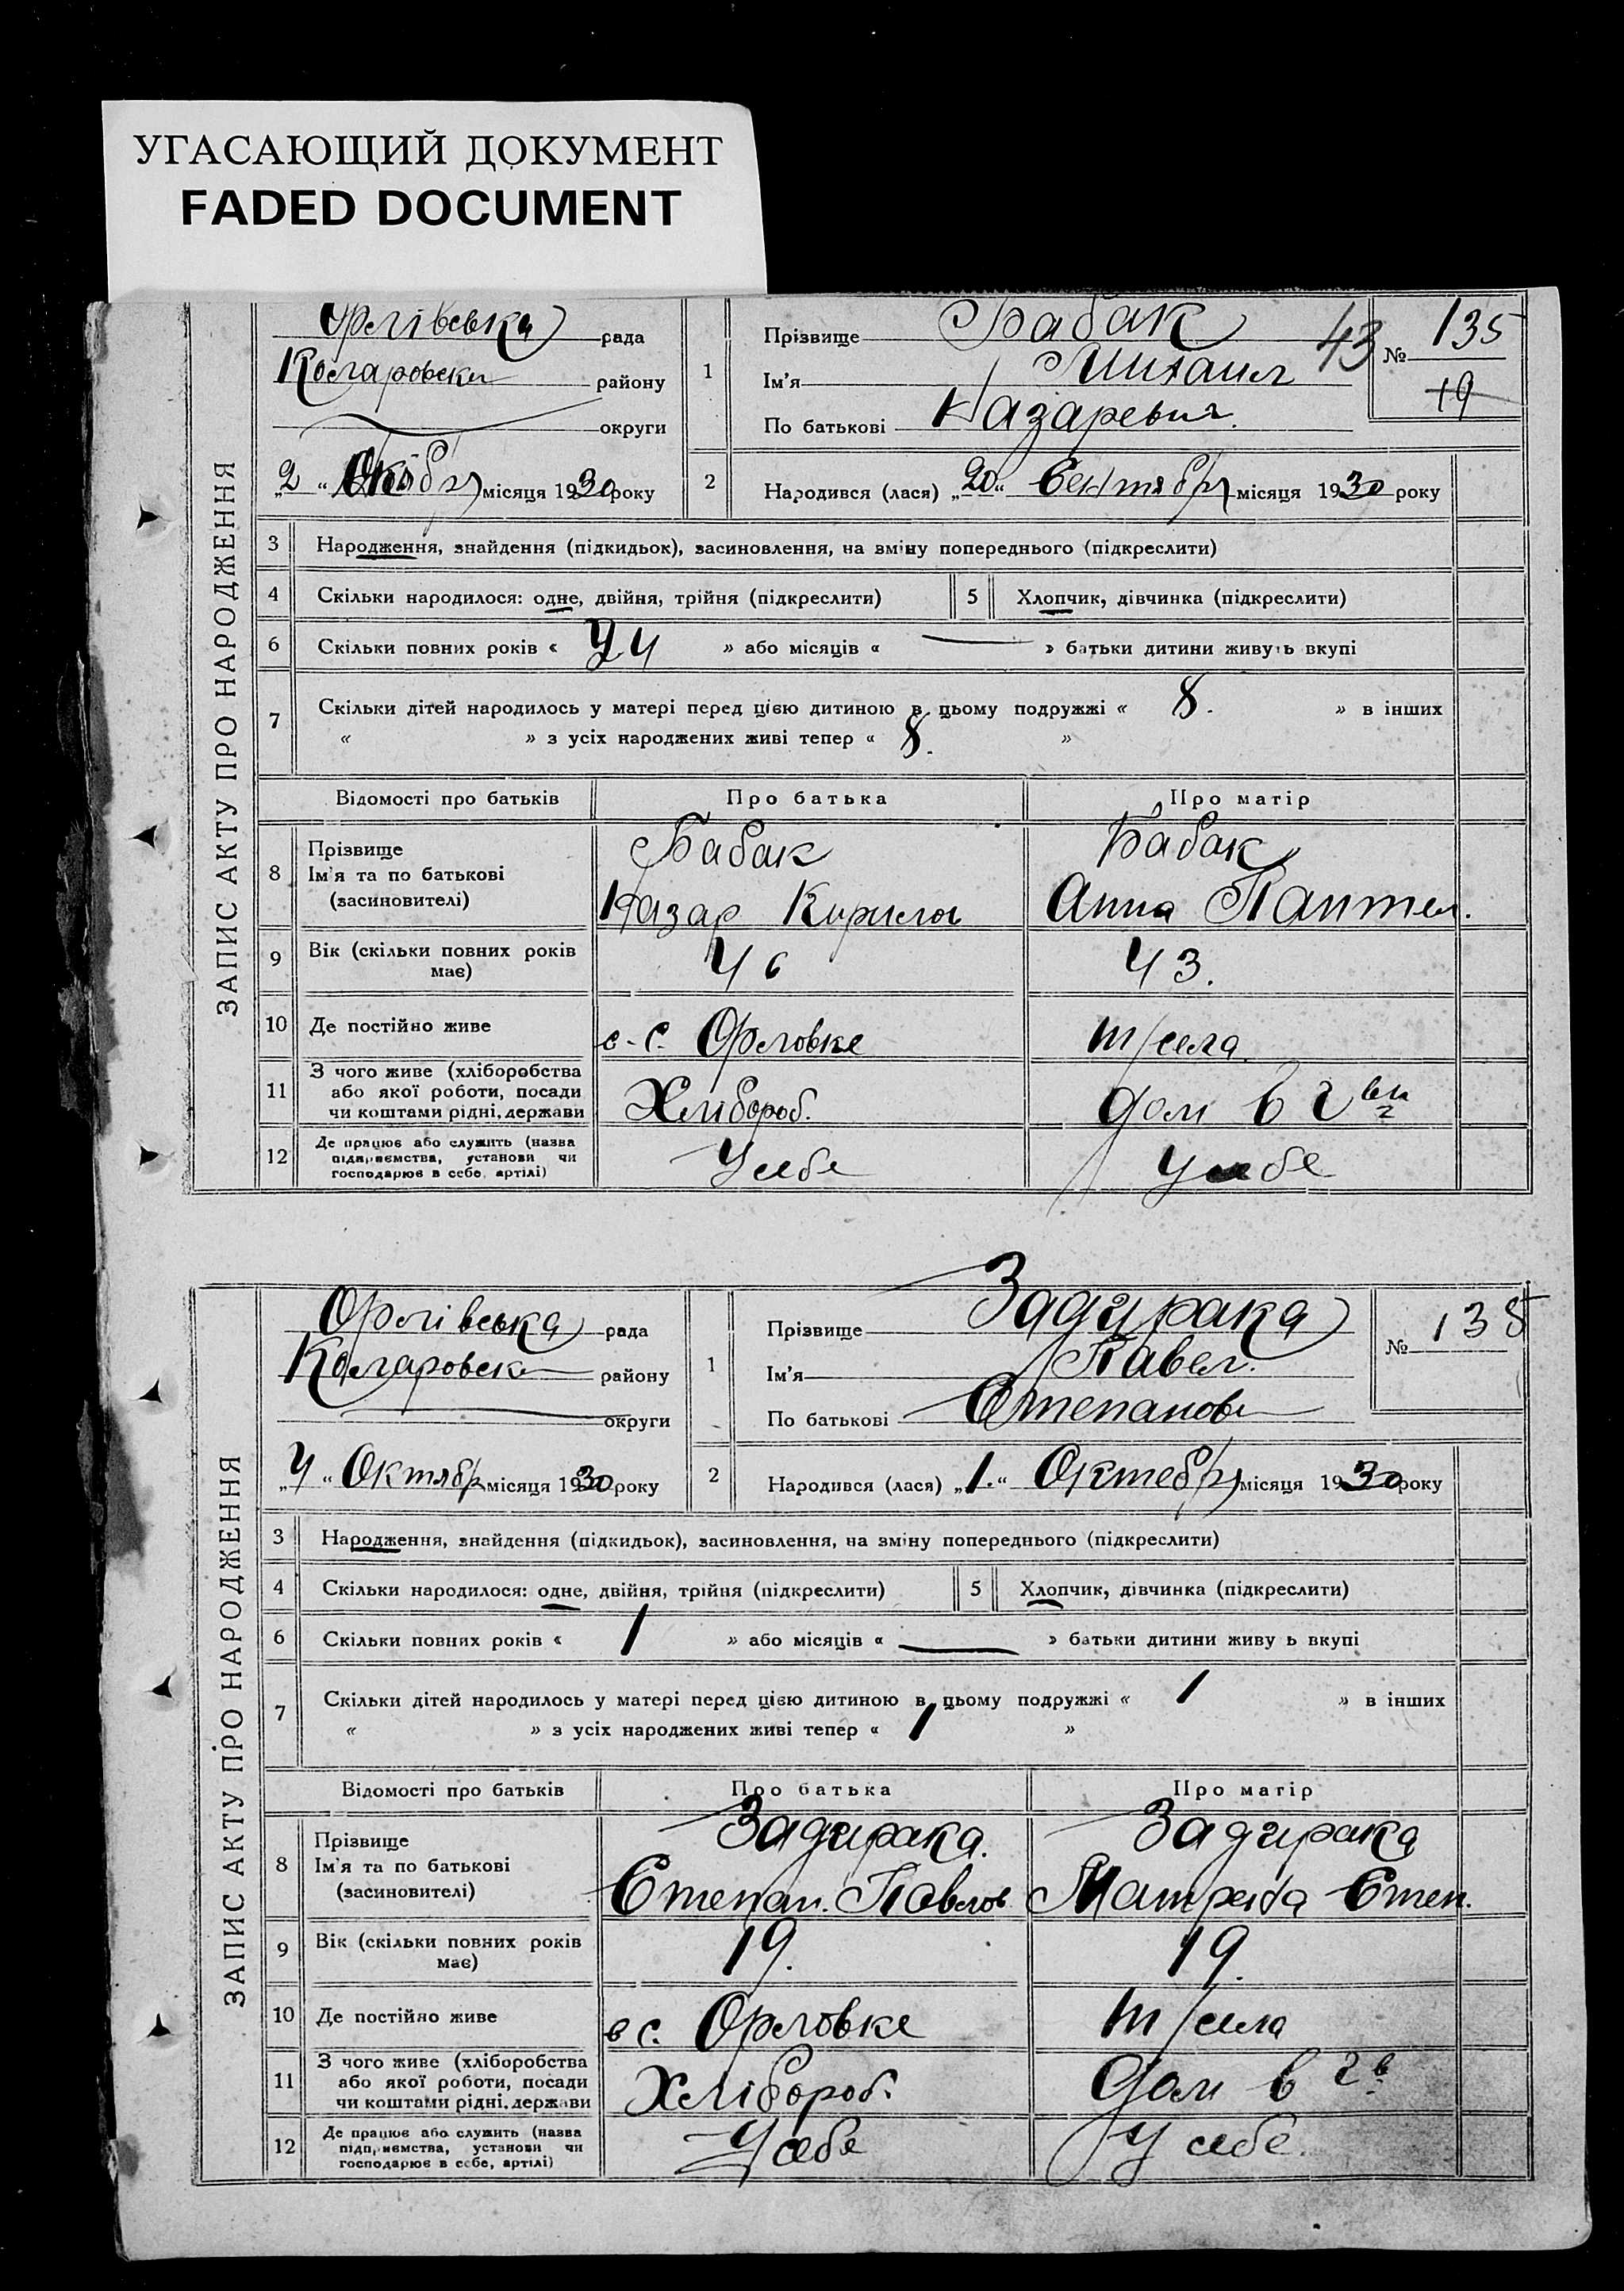 УГАСАЮЩИЙ ДОКУМЕНТ
FADED DOCUMENT
ЗАПИС АКТУ ПРО НАРОДЖЕННЯ
Орлівська рада
Коларовски району
округи
„2“ Октября місяця 1930 року
1 Прізвище Бабак
Ім'я Михаил
По батькові Назаревич.
43 № 135
19
2 Народився (лася) „20“ Сентября місяця 1930 року
3 Народження, знайдення (підкидьок), засиновлення, на зміну попереднього (підкреслити)
4 Скільки народилося: одне, двійня, трійня (підкреслити) 5 Хлопчик, дівчинка (підкреслити)
6 Скільки повних років « » або місяців « — » батьки дитини живуть вкупі
7 Скільки дітей народилось у матері перед цією дитиною в цьому подружжі « 8. » в інших
« » з усіх народжених живі тепер « 8. »
Відомості про батьків Про батька Про матір
8 Прізвище Бабак Бабак
Ім'я та по батькові
(засиновителі) Назар Кирилов Анна Пантел.
9 Вік (скільки повних років має) 46 43.
10 Де постійно живе в с. Орловке т/села.
11 З чого живе (хліборобства
або якої роботи, посади
чи коштами рідні, держави Хлібороб. дом в
12 Де працює або служить (назва
підприємства, установи чи
господарює в себе, артілі) У себе У себе
ЗАПИС АКТУ ПРО НАРОДЖЕННЯ
Орлівська рада
Коларовск району
округи
„4“ Октября місяця 1930 року
1 Прізвище Задирака
Ім'я Павел.
По батькові Степанов
№ 138
2 Народився (лася) „1.“ Октебря місяця 1930 року
3 Народження, знайдення (підкидьок), засиновлення, на зміну попереднього (підкреслити)
4 Скільки народилося: одне, двійня, трійня (підкреслити) 5 Хлопчик, дівчинка (підкреслити)
6 Скільки повних років « 1 » або місяців « — » батьки дитини живу ь вкупі
7 Скільки дітей народилось у матері перед цією дитиною в цьому подружжі « 1 » в інших
« » з усіх народжених живі тепер « 1 »
Відомості про батьків Про батька Про матір
8 Прізвище Задирака. Задирака
Ім'я та по батькові
(засиновителі) Степан. Павлов Матрена Степ.
9 Вік (скільки повних років має) 19. 19.
10 Де постійно живе в с. Орловке т/села
11 З чого живе (хліборобства
або якої роботи, посади
чи коштами рідні, держави Хлібороб. Дом в
12 Де працює або служить (назва
підприємства, установи чи
господарює в себе, артілі) У себе У себе.